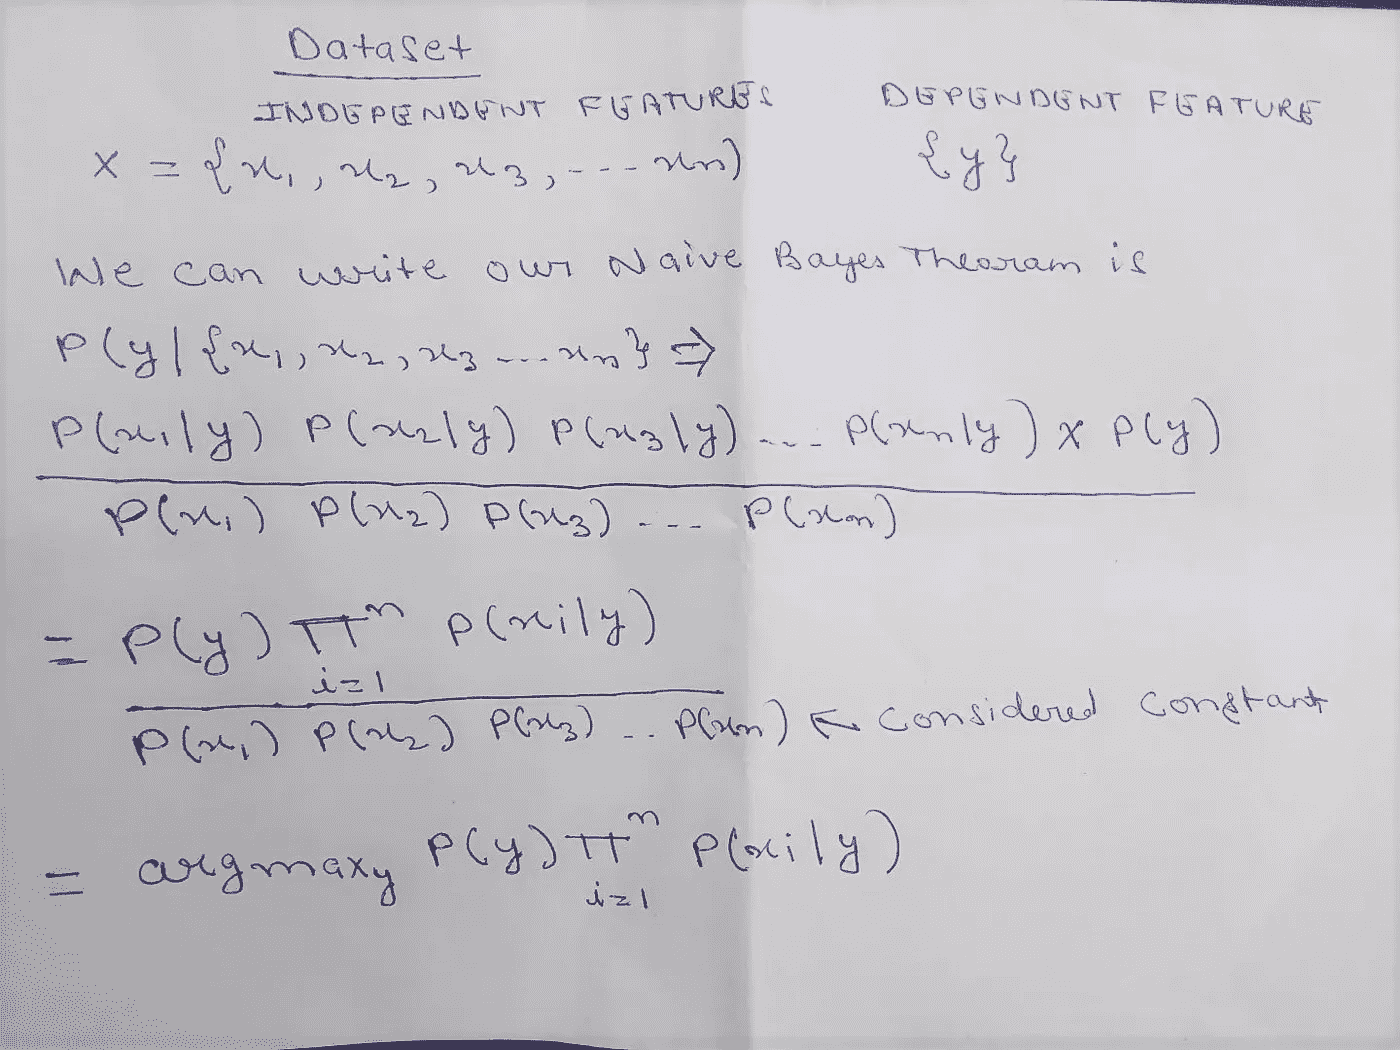 Dataset
INDEPENDENT FEATURES DEPENDENT FEATURE
X = {x1, x2, x3, --- xn) {y}
We can write our Naive Bayes Thearam is
P(y | {x1, x2, x3 ---. xn} ⇒
P(x1|y) P(x2|y) P(x3|y) --- P(xn|y) x P(y)
P(x1) P(x2) P(x3) --- P(xn)
= P(y) π^n P(xi|y)
i=1
P(x1) P(x2) P(x3) .. P(xn) ← Considered Constant
= argmaxy P(y) π^n P(xi|y)
i=1